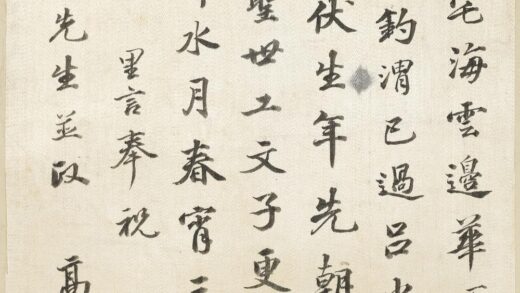 海雲邊華
釣渭已過呂
伏生年先朝
聖世工文子更
水月春宵
里言奉祝
先生並政 高